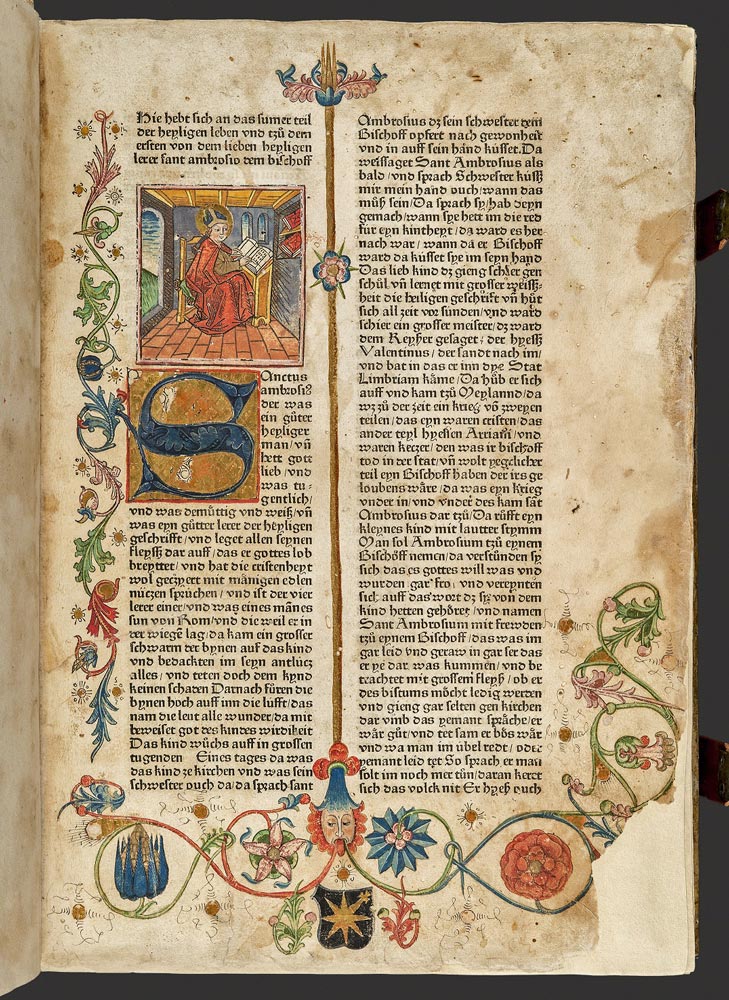 Hie hebt sich an das sumer teil
der heyligen leben vnd tzů dem
ersten von dem lieben heyligen
lerer sant ambrosio dem bischoff
Sanctus
ambrosiꝰ
der was
ein gůter
heyliger
man/ vñ
hett gott
lieb/ vnd
was tu-
gentlich/
vnd was demůttig vnd weiß/ vñ
was eyn gůtter lerer der heyligen
geschrifft/ vnd leget allen seynen
fleyss dar auff/ das er gottes lob
breyttet/ vnd hat die cristenheyt
wol geczyert mit mānigen edlen
nůtzen sprůchen/ vnd ist der vier
lerer einer/ vnd was eines mānes
sun von Rom/ vnd die weil er in
der wiege lag/ da kam ein grosser
schwarm der bynen auf das kind
vnd bedackten im seyn antlůtz
alles/ vnd teten doch dem kynd
keinen schaden Darnach fůren die
bynen hoch auff inn die lůfft/ das
nam die leut alle wunder/ da mit
beweiset got des kindes wirdiheit
Das kind wůchs auff in grossen
tugenden Eines tages da was
das kind ze kirchen vnd was sein
schwester ouch da/ da sprach sant
Ambrosius dz sein schwester dem
Bischoff opfert nach gewonheit
vnd in auff sein hand kůsset. Da
weissaget Sant Ambrosius als
bald/ vnd sprach Schwester kůss
mir mein hand ouch/ wann das
můß sein/ Da sprach sy/ hab deyn
gemach/ wann sye hett im die red
fůr eyn kintheyt/ da ward es her
nach war/ wann da er Bischoff
ward da kůsset sye im seyn hand
Das lieb kind dz gieng schier gen
schůl vñ lernet mit grosser weiß-
heit die heiligen geschrift vñ hůt
sich all zeit vor sunden/ vnd ward
schier ein grosser meister/ dz ward
dem Keyser gesaget/ der hyess
Valentinus/ der sandt nach im/
vnd bat in das er inn dye Stat
Limbriam kåme/ Da hůb er sich
auff vnd kam tzů Meylannd/ da
wz zů der zeit ein krieg vō zweyen
teilen/ das eyn waren cristen/ das
ander teyl hyessen Arriani/ vnd
waren ketzer/ den was ir bischoff
tod in der stat/ vñ wolt yegclicher
teil eyn Bischoff haben der irs ge
loubens wåre/ da was eyn krieg
vnder in/ vnd vnder des kam sāt
Ambrosius dar tzů/ Da růfft eyn
kleynes kind mit lautter stymm
Man sol Ambrosium tzů eynem
Bischoff nemen/ da verstůnden sy
sich das es gottes will was vnd
wurden gar fro/ vnd vereynten
sich auff das wort dz sy von dem
kind hetten gehöret/ vnd namen
Sant Ambrosium mit frewden
tzů eynem Bischoff/ das was im
gar leid vnd geraw in gar ser das
er ye dar was kummen/ vnd be
trachtet mit grossem fleyß/ ob er
des bistums möcht ledig werden
vnd gieng gar selten gen kirchen
dar vmb das yemant språche/ er
wår gůt/ vnd tet sam er bös wår
vnd wa man im ůbel redt/ oder
yemant leid tet So sprach er man
solt im noch mer tůn/ daran keret
sich das volck nit Er hyeß ouch